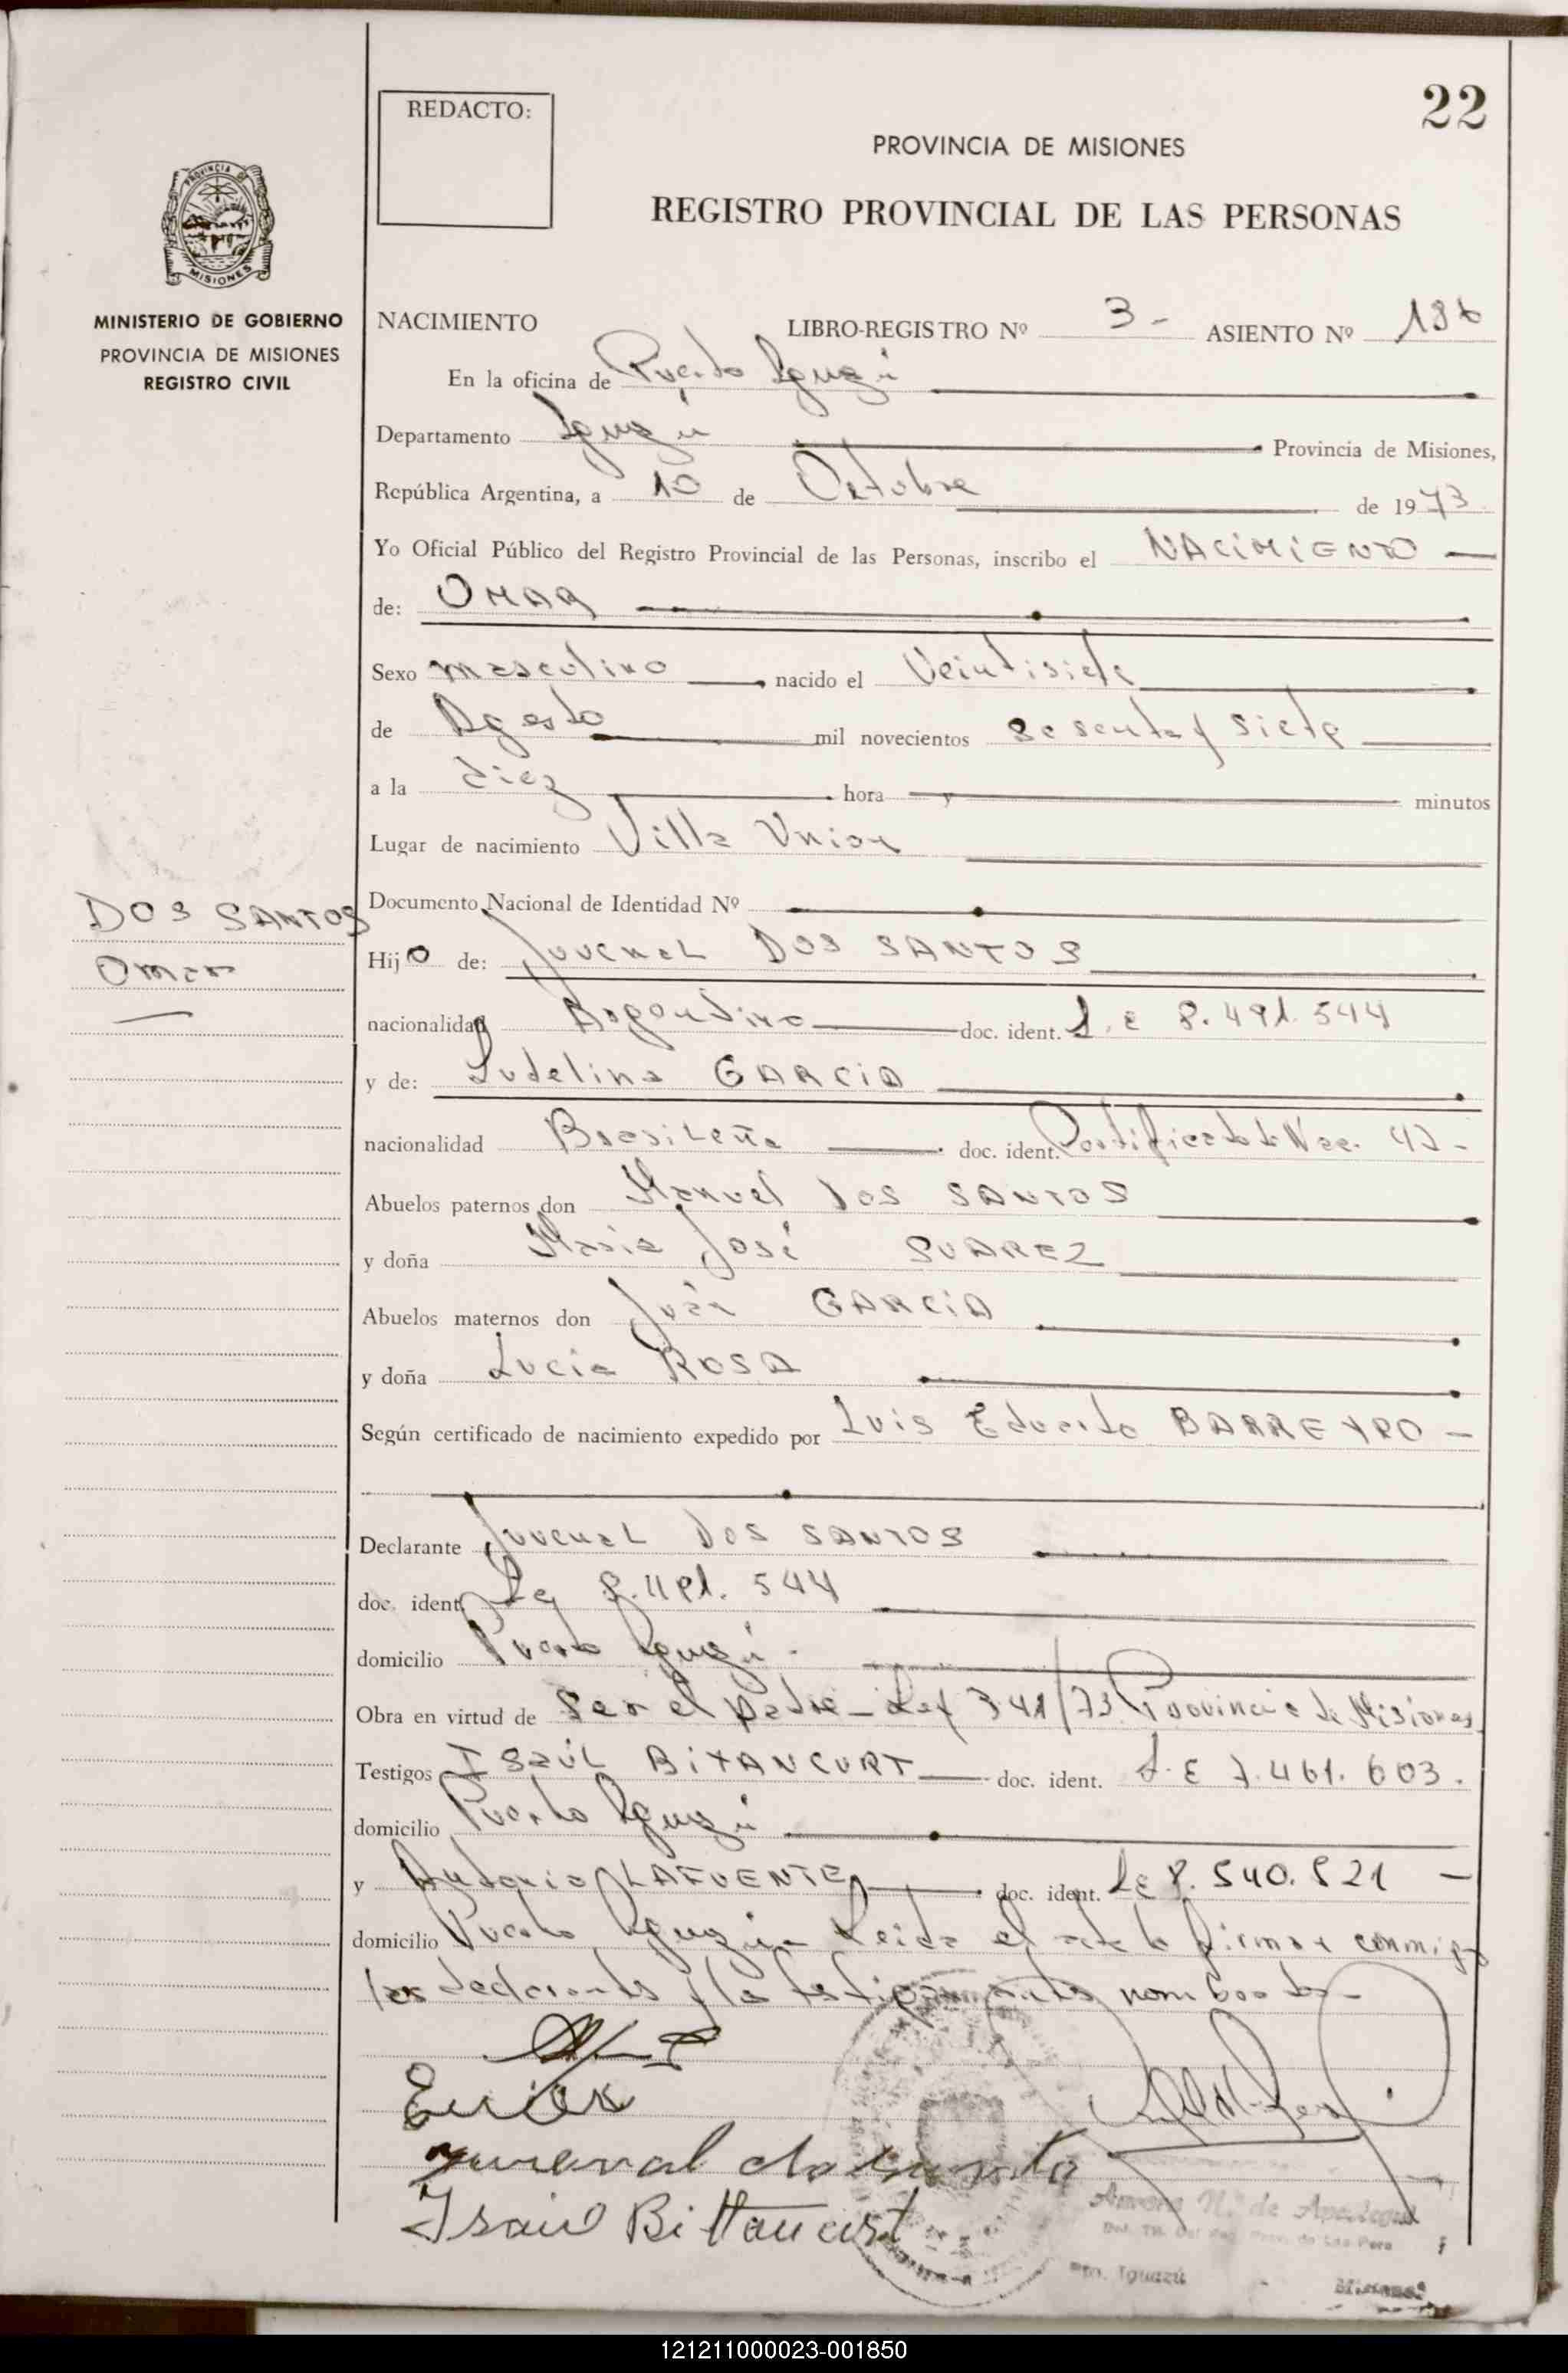 22
REDACTO:
PROVINCIA DE MISIONES
REGISTRO PROVINCIAL DE LAS PERSONAS
PROVINCIA DE
MISIONES
MINISTERIO DE GOBIERNO
PROVINCIA DE MISIONES
REGISTRO CIVIL
NACIMIENTO LIBRO-REGISTRO Nº 3 - ASIENTO Nº
En la oficina de Puerto Iguazú
Departamento Iguazú Provincia de Misiones,
República Argentina, a 10 de Octubre de 1973
Yo Oficial Público del Registro Provincial de las Personas, inscribo el NACIMIENTO
de: OMAR
Sexo masculino nacido el Veintisiete
de Agosto mil novecientos sesenta y siete
a la diez hora y minutos
Lugar de nacimiento Villa Union
Documento Nacional de Identidad Nº
DOS SANTOS
Omar
Hijo de: Juvenal DOS SANTOS
nacionalidad Argentino doc. ident. L.E 8.491.544
y de: Ludelina GARCIA
nacionalidad Brasileña doc. ident. Certificado de Nac. 42 -
Abuelos paternos don Manuel DOS SANTOS
y doña Maria José SUAREZ
Abuelos maternos don Juan GARCIA
y doña Lucia ROSA
Según certificado de nacimiento expedido por Luis Eduardo BARREYRO -
Declarante Juvenal DOS SANTOS
doc. ident. L.E 8.491.544
domicilio Puerto Iguazú -
Obra en virtud de ser el padre - Ley 341/73 Provincia de Misiones
Testigos Isaúl BITANCURT doc. ident. L.E 7.461.603.
domicilio Puerto Iguazú
y Antonio LAFUENTE doc. ident. LE 8.540.821 -
domicilio Puerto Iguazú - Leida el acta la firman conmigo
los declarante y los testigos antes nombrados -
Juvenal dos santo
Isaul Bittancurt
Nº de Apestegui
Pto. Iguazú Misiones
121211000023-001850